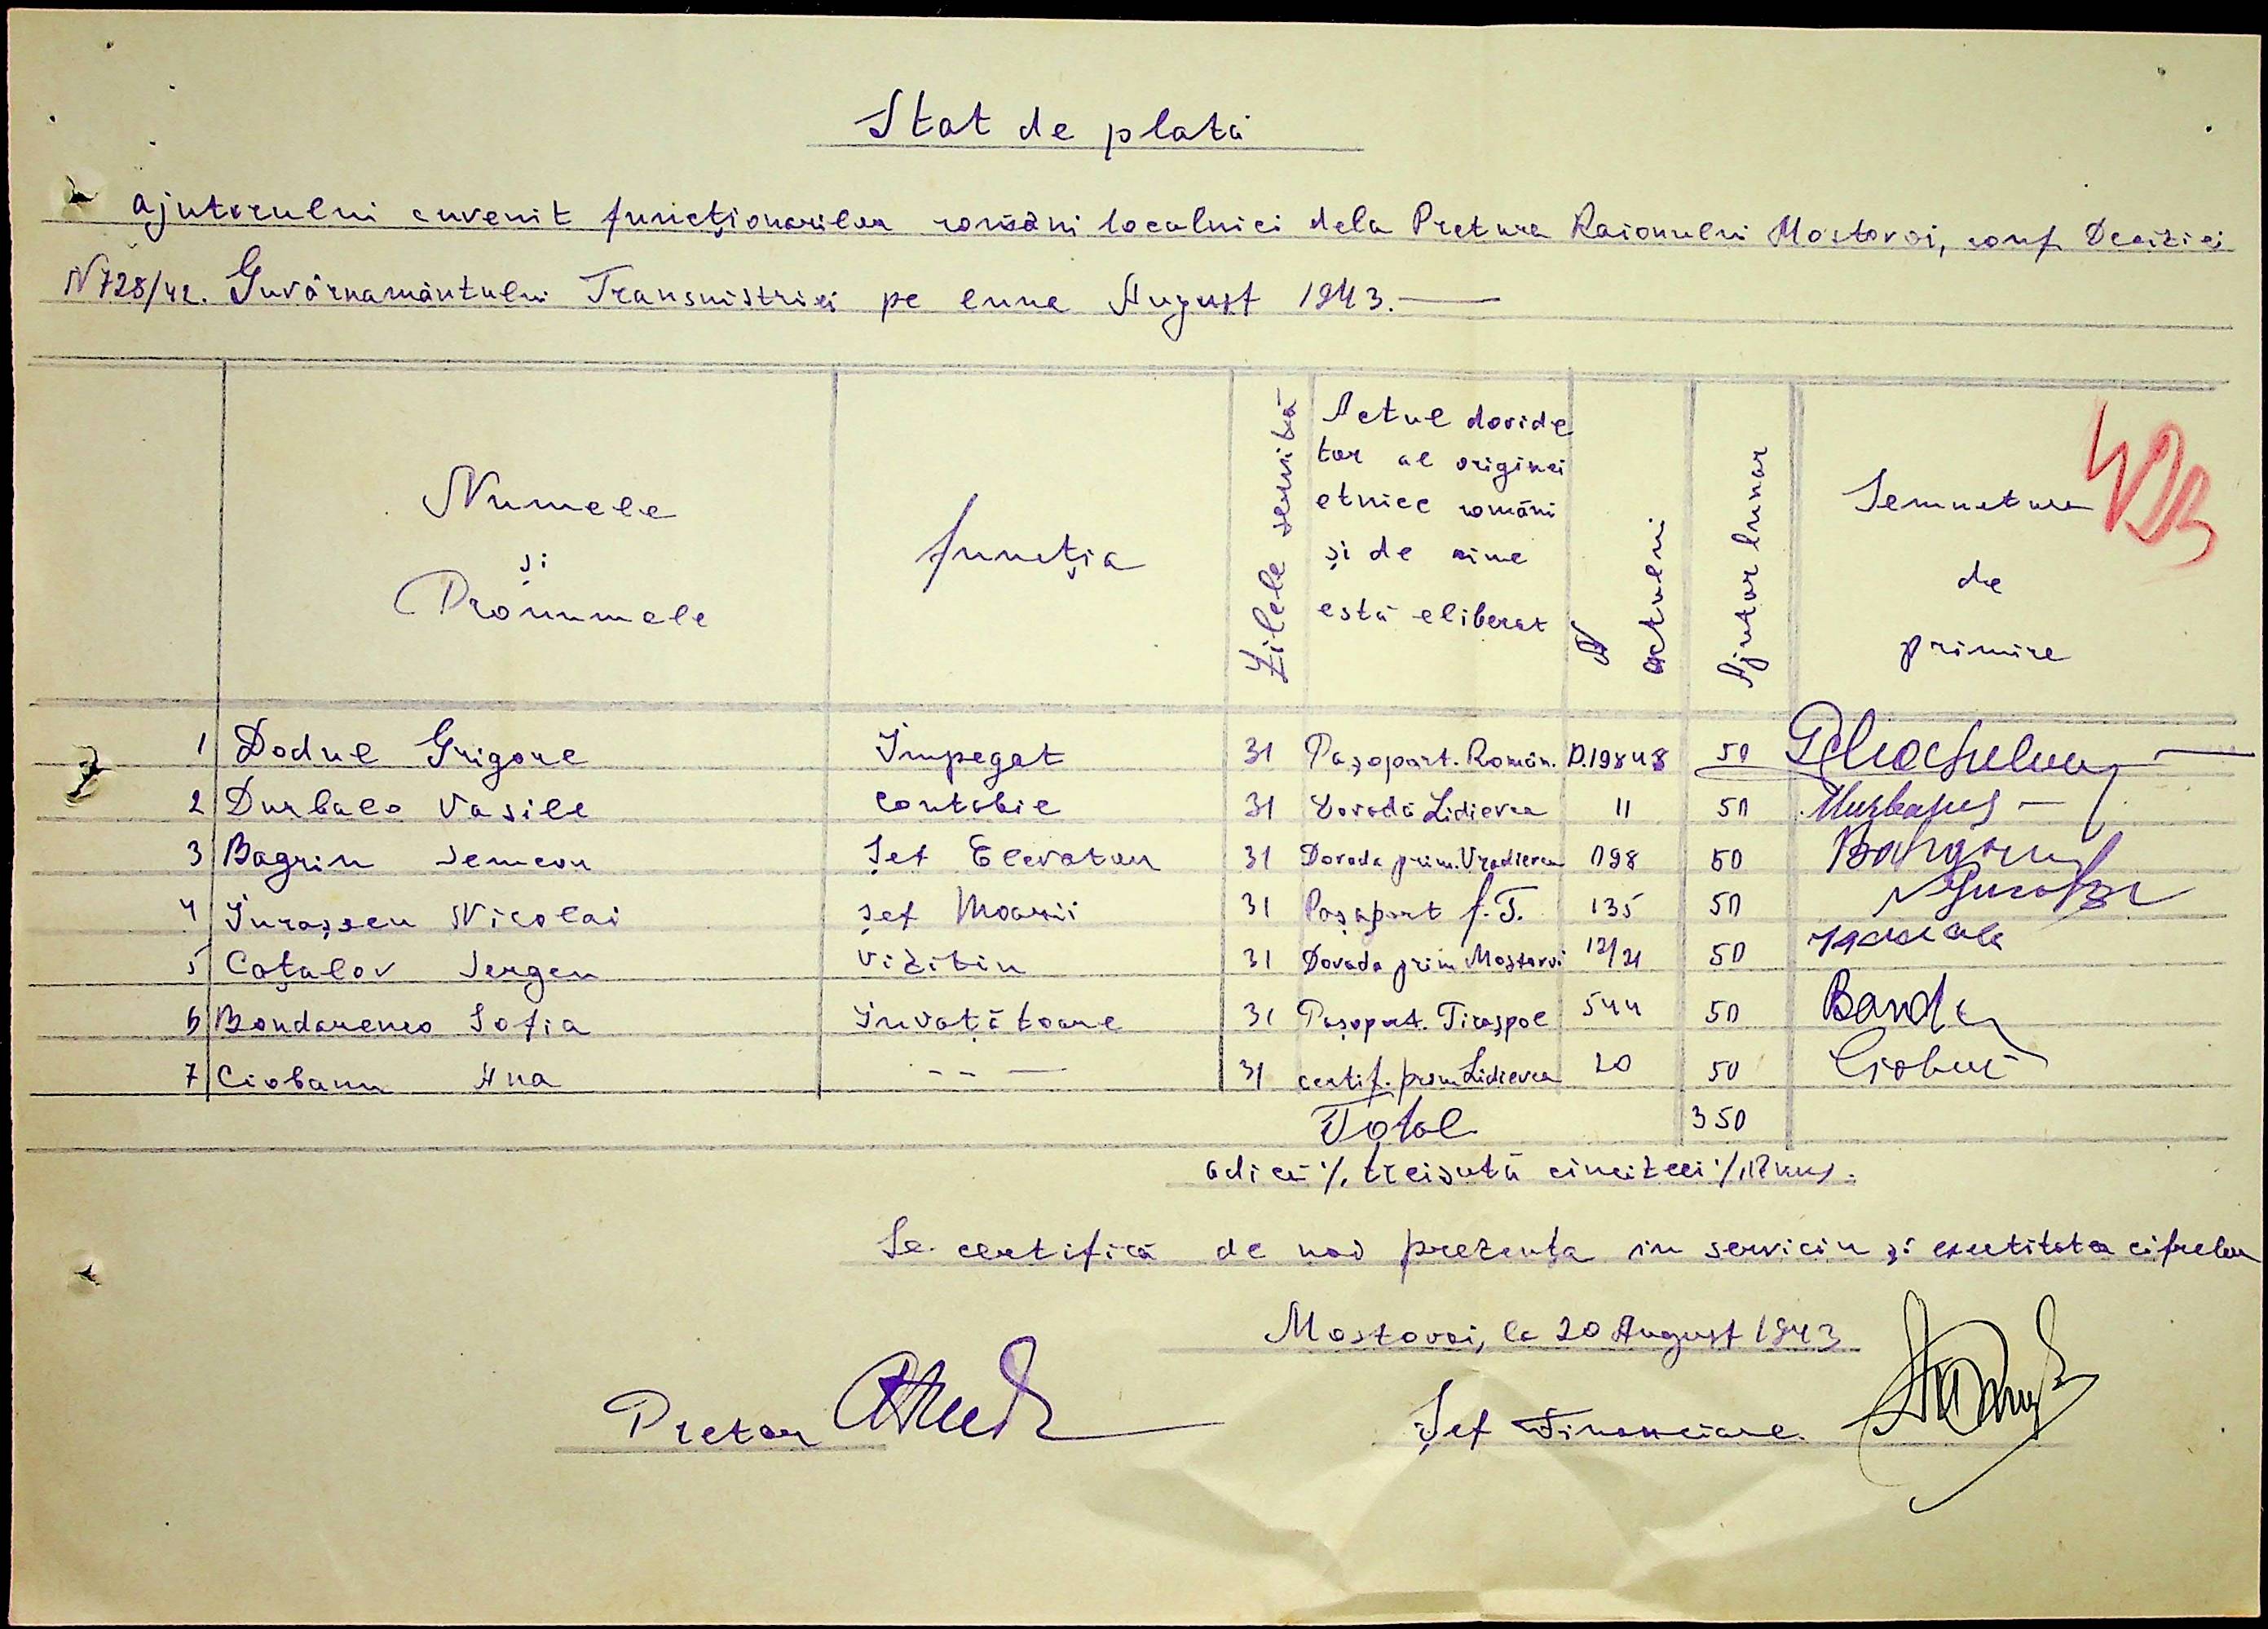 Stat de plată
ajutorului cuvenit funcționarilor români localnici dela Pretura Raionului Mostovoi, conf. Deciziei
N 728/42. Guvărnamântului Transnistriei pe luna August 1943.—
Numele și Pronumele
funcția
Zilele servită
Actul dovide
tor al originei
etnice români
și de cine
estă eliberat
N actului
Ajutor lunar
Semnetura
de
primire
1 Dodul Grigore Impegat 31 Pașoport. Român. D.19848 50
2 Durbalo Vasile Contabil 31 Dovadă Lidievca 11 50
3 Bagrin Semeon Șef Elevator 31 Dovada prim. Vradievca 098 50
4 Iurașcu Nicolai șef Moarii 31 Pașaport f. T. 135 50
5 Coțalov Sergeu Vizitiu 31 Dovada prim Mostovoi 12/21 50
6 Bondarenco Sofia Invațătoare 31 Pașoport. Tiraspol 544 50
7 Ciobanu Ana -- — 31 certif. prim Lidievca 20 50
Total 350
adică %. treisută cincizeci %.
Se certifică de noi prezența in serviciu și exactitatea cifrelor
Mostovoi, la 20 August 1943
Pretor
Șef Financiare.